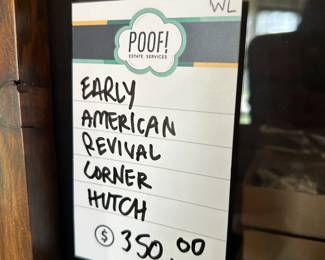 WL
POOF!
ESTATE SERVICES
EARLY
AMERICAN
REVIVAL
CORNER
HUTCH
$ 350.00